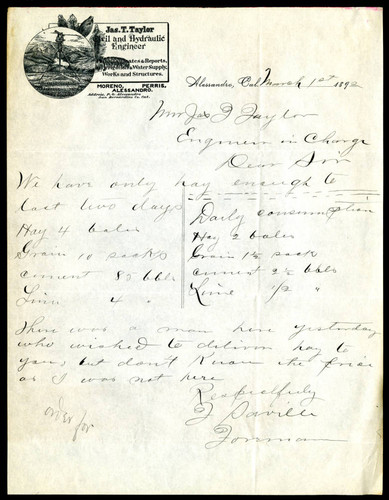 Jas. T. Taylor
Civil and Hydraulic
Engineer
Estimates & Reports,
Water Supply,
Works and Structures.
MORENO, PERRIS,
ALESSANDRO.
Address, P. O. Alessandro,
San Bernardino Co. Cal.
Alessandro, Cal. March 1st 1892
Mr Jas T Taylor
Engineer in Charge
Dear Sir
We have only hay enough to
last two days
Daily consumption
Hay 4 bales
Hay 2 bales
Grain 10 sacks
Grain 1½ sack
cement 80 bbls
cement 2½ bbls
Lime 4 "
Lime 1/2 "
There was a man here yesterday
who wished to deliver hay to
you, but don't know the price
as I was not here
Respectfully
F Saville
Foreman
order for